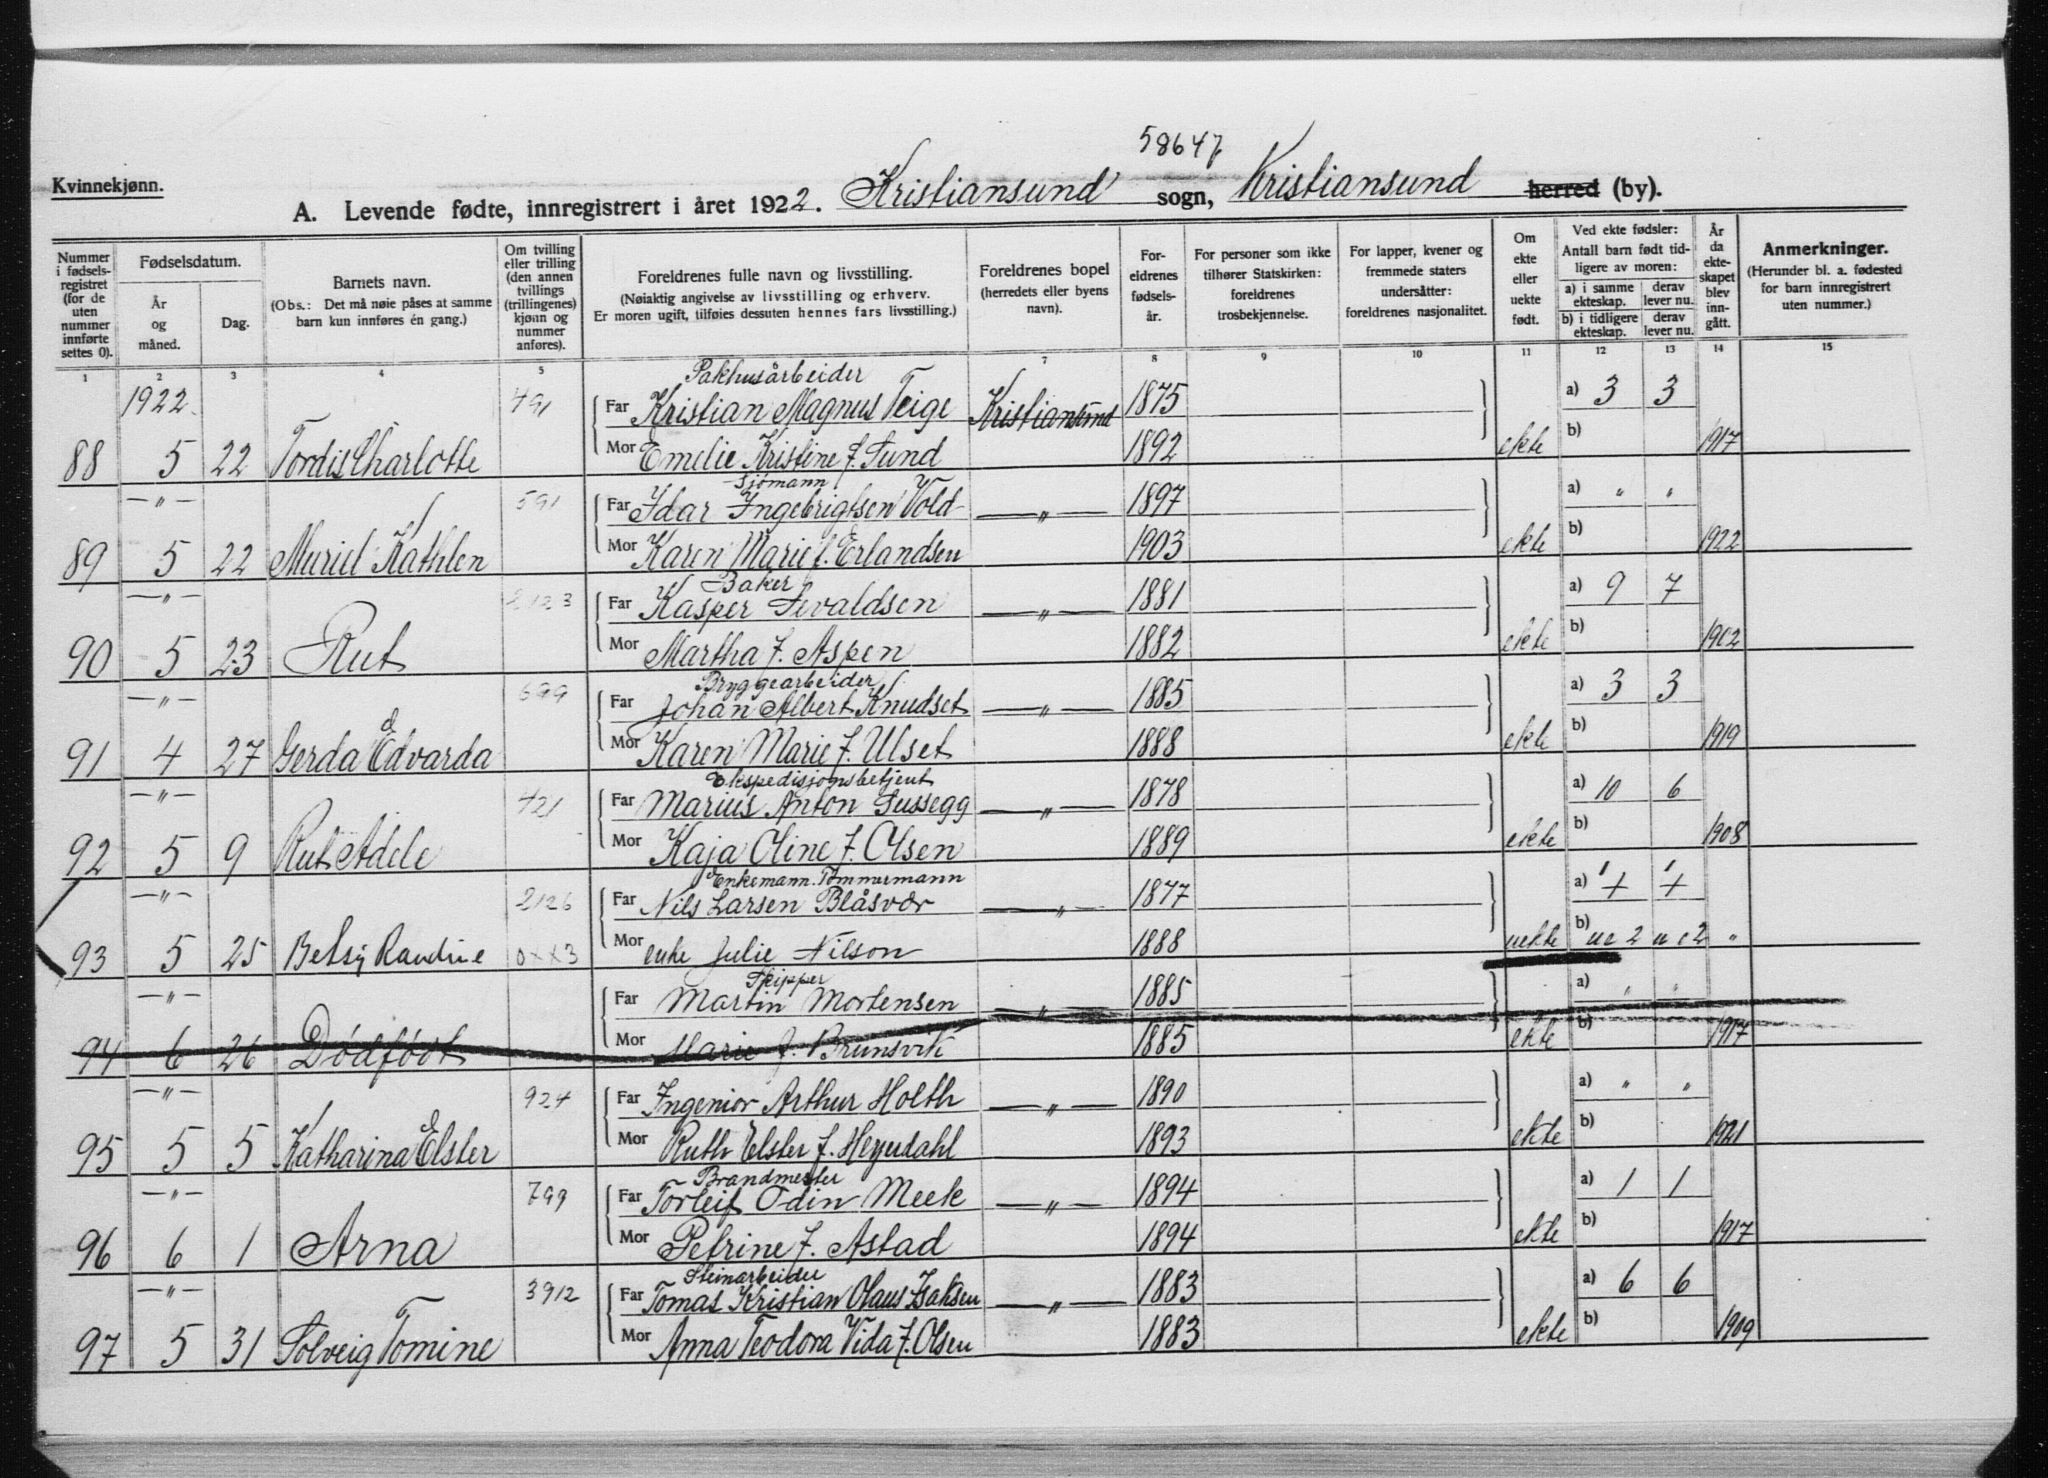 58647
Kvinnekjønn.
A. Levende fødte, innregistrert i året 1922. Kristiansund sogn, Kristiansund herred (by).
Nummer i fødselsregistret (for de uten nummer innførte settes 0).
Fødselsdatum.
År og måned.
Dag.
Barnets navn.
(Obs.: Det må nøie påses at samme barn kun innføres én gang.)
Om tvilling eller trilling (den annen tvillings (trillingenes) kjønn og nummer anføres).
Foreldrenes fulle navn og livsstilling.
(Nøiaktig angivelse av livsstilling og erhverv.
Er moren ugift, tilføies dessuten hennes fars livsstilling.)
Foreldrenes bopel (herredets eller byens navn).
Foreldrenes fødselsår.
For personer som ikke tilhører Statskirken: foreldrenes trosbekjennelse.
For lapper, kvener og fremmede staters undersåtter: foreldrenes nasjonalitet.
Om ekte eller uekte født.
Ved ekte fødsler: Antall barn født tidligere av moren:
a) i samme ekteskap.
derav lever nu.
b) i tidligere ekteskap.
derav lever nu.
År da ekteskapet blev inngått.
Anmerkninger.
(Herunder bl. a. fødested for barn innregistrert uten nummer.)
1 2 3 4 5 7 8 9 10 11 12 13 14 15
1922. 491 Pakhusarbeider
Far Kristian Magnus Teige Kristiansund 1875 a) 3 3
88 5 22 Tordis Charlotte Mor Emelie Kristine f. Sund 1892 ekte b) 1917
—"— 591 Sjømann
Far Idar Ingebrigtsen Vold —"— 1897 a) " "
89 5 22 Muriel Kathlen Mor Karen Marie f. Erlandsen 1903 ekte b) 1922
—"— 2123 Baker
Far Kasper Sevaldsen —"— 1881 a) 9 7
90 5 23 Rut Mor Martha f. Aspen 1882 ekte b) 1902
—"— 699 Bryggearbeider
Far Johan Albert Knudset —"— 1885 a) 3 3
91 4 27 Gerda Edvarda Mor Karen Marie f. Ulset 1888 ekte b) 1919
—"— 421 Ekspedisjonsbetjent
Far Marius Anton Sussegg —"— 1878 a) 10 6
92 5 9 Rut Adele Mor Kaja Oline f. Olsen 1889 ekte b) 1908
—"— 2126 Enkemann. Tømmermann
Far Nils Larsen Blåsvær —"— 1877 a) 1 1
93 5 25 Betsy Randine 0××3 Mor enke Julie Nilson 1888 uekte b) ue 2 ue 2 "
—"— Skipper
Far Martin Mortensen —"— 1885 a) " "
94 6 26 Dødfødt Mor Marie f. Brunsvik 1885 ekte b) 1917
—"— 924 Far Ingeniør Arthur Holth —"— 1890 a) " "
95 5 5 Katharina Elster Mor Ruth Elster f. Heyerdahl 1893 ekte b) 1921
—"— 799 Brandmester
Far Torleif Odin Meek —"— 1894 a) 1 1
96 6 1 Arna Mor Petrine f. Astad 1894 ekte b) 1917
—"— 3912 Steinarbeider
Far Tomas Kristian Olaus Isaksen —"— 1883 a) 6 6
97 5 31 Solveig Tomine Mor Anna Teodora Vida f. Olsen 1883 ekte b) 1909